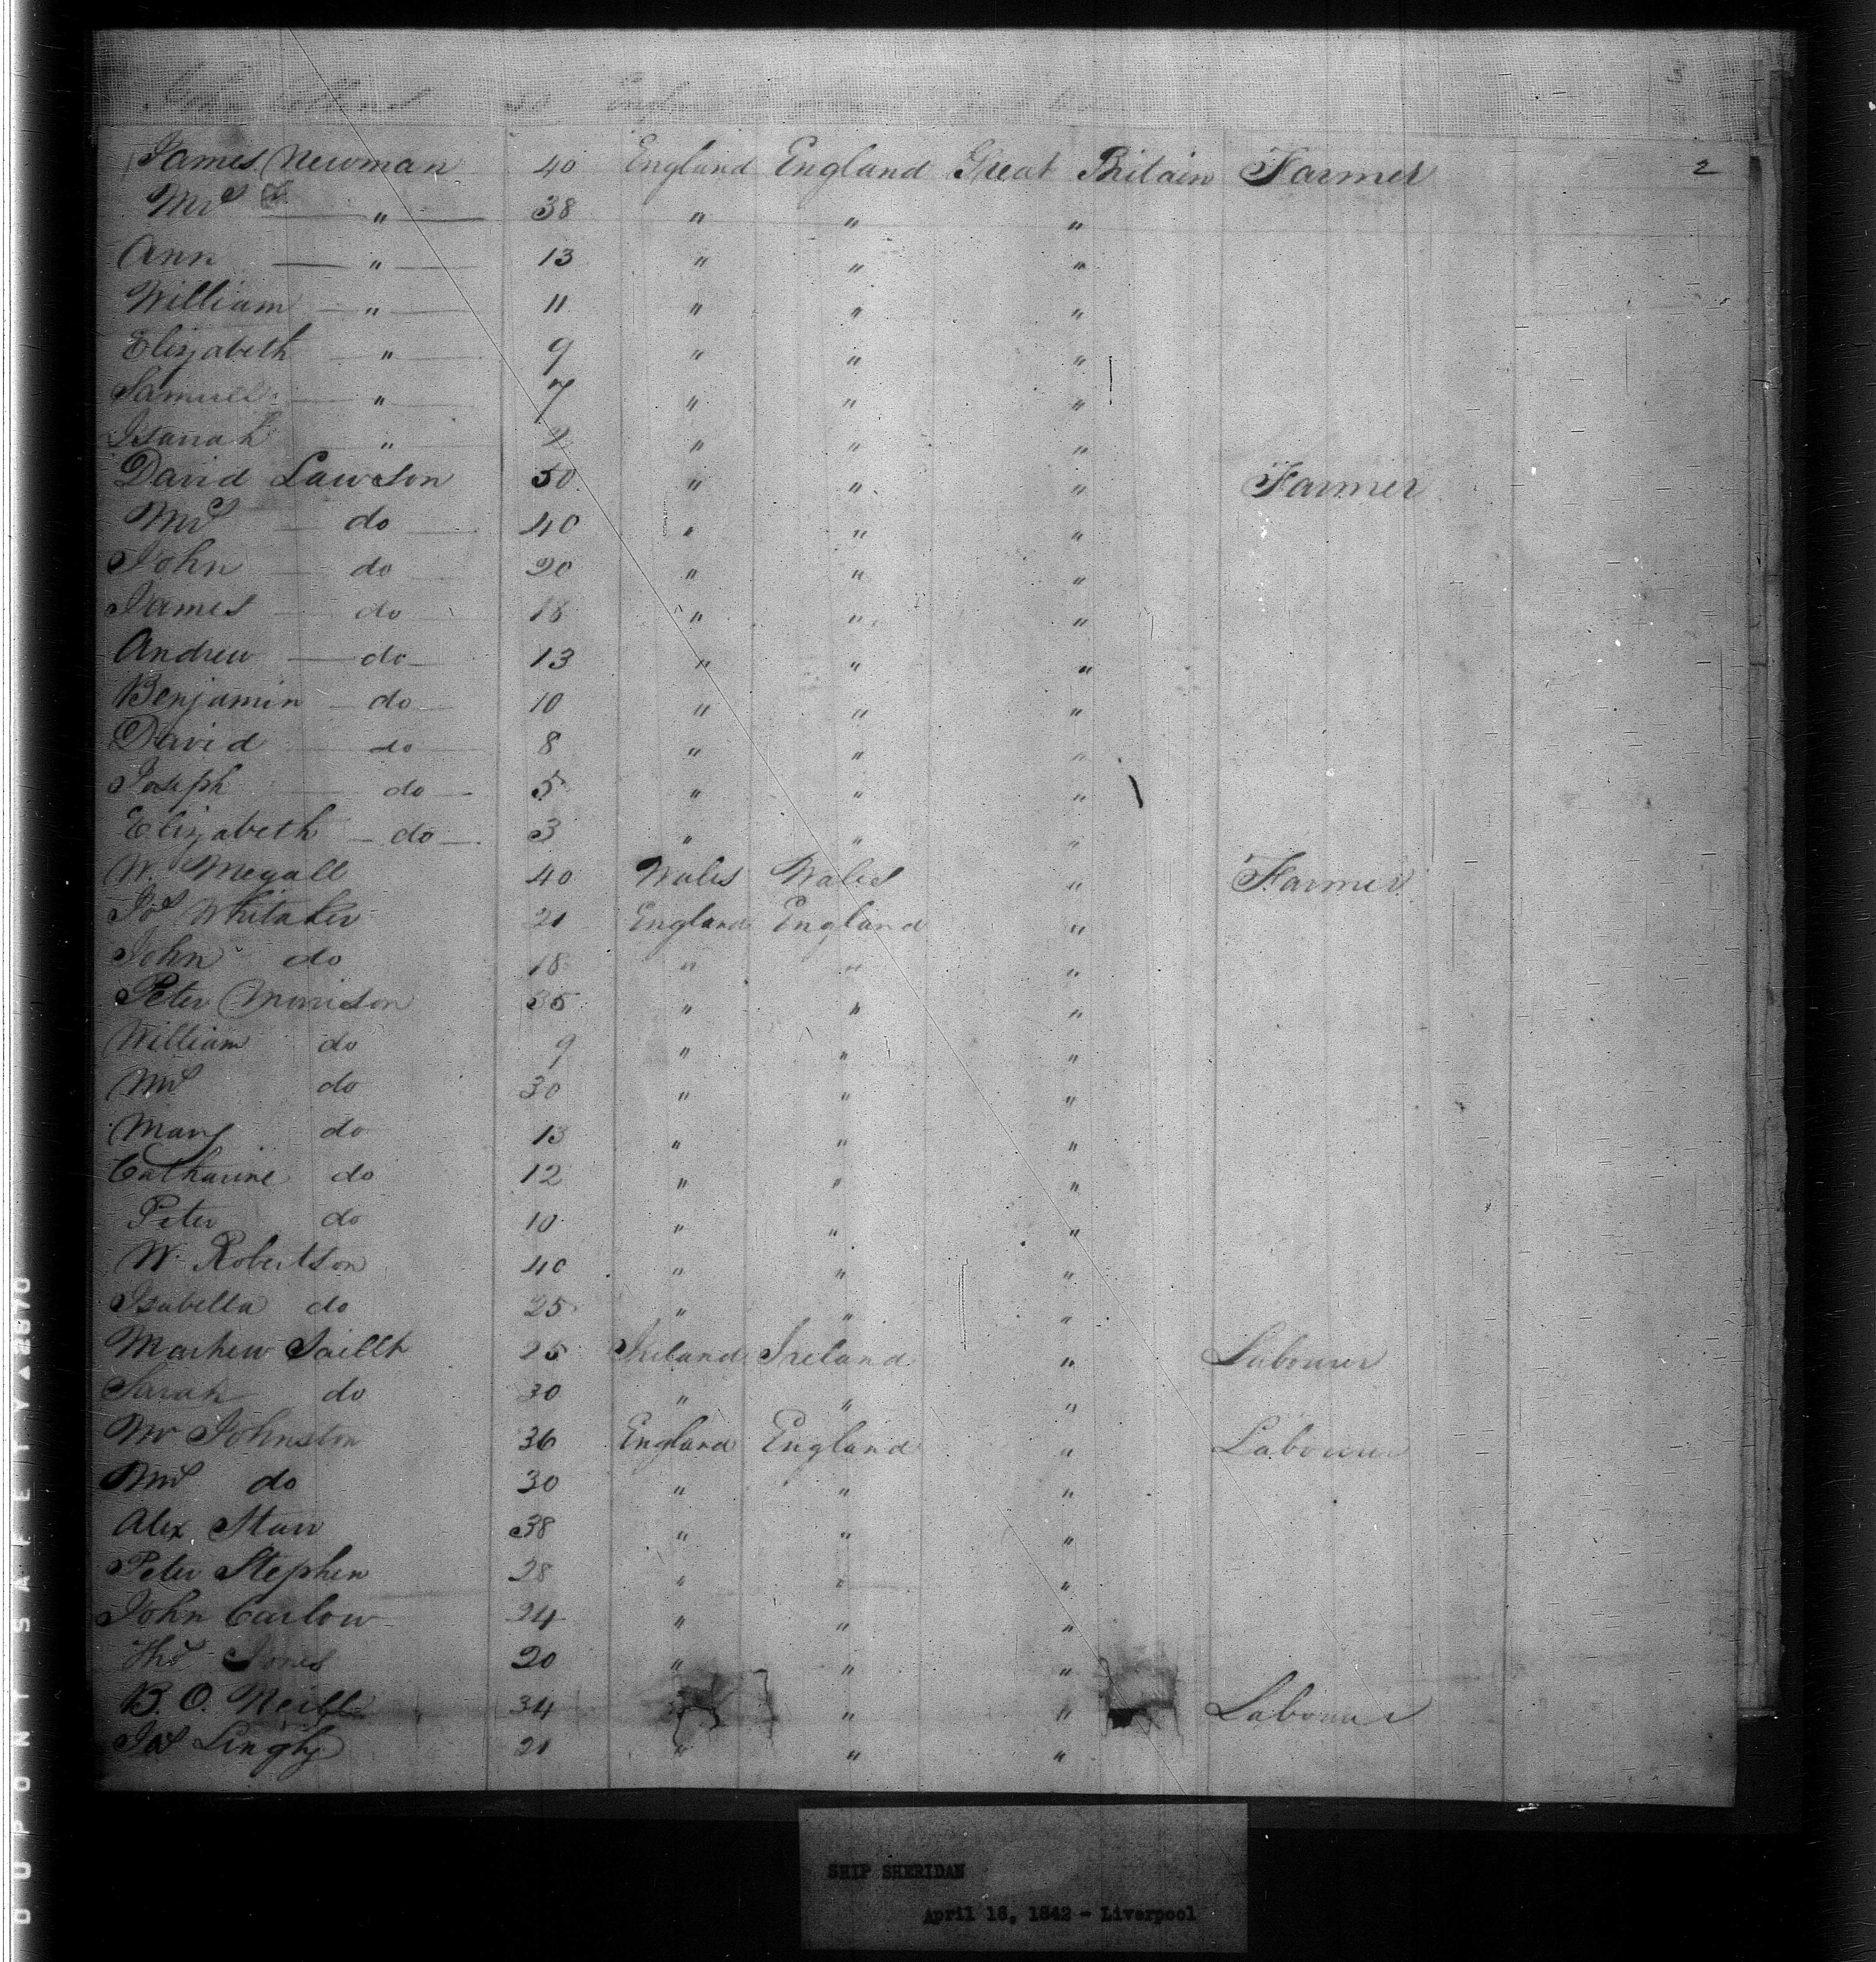 James Newman 40 England England Great Britain Farmer 2
Mrs " 38 " " "
Ann " 13 " " "
William " 11 " " "
Elizabeth " 9 " " "
Samuel " 7 " " "
" " " "
David Lawson 50 " " " Farmer
Mrs do 40 " " "
John do 20 " " "
James do 18 " " "
Andrew do 13 " " "
Benjamin do 10 " " "
David do 8 " " "
Joseph do 5 " " "
Elizabeth do 3 " " "
W. Megall 40 Wales Wales " Farmer
Jos Whitaker 21 England England "
John do 18 " " "
Peter Morrison 35 " " "
William do 9 " " "
Mrs do 30 " " "
Mary do 13 " " "
Catharine do 12 " " "
Peter do 10 " " "
W. Robertson 40 " " "
Isabella do 25 " " "
25 Ireland Ireland " Labourer
Sarah do 30 " " "
Mr Johnston 36 England England " Labourer
Mrs do 30 " " "
Alex Starr 38 " " "
Peter Stephen 28 " " "
John Carlow 24 " " "
Thos Jones 20 " " "
B. O. Neill 34 " " Labourer
Jas Linghy 21 " " "
DUPONT SAFETY
SHIP SHERIDAN
April 18, 1842 - Liverpool